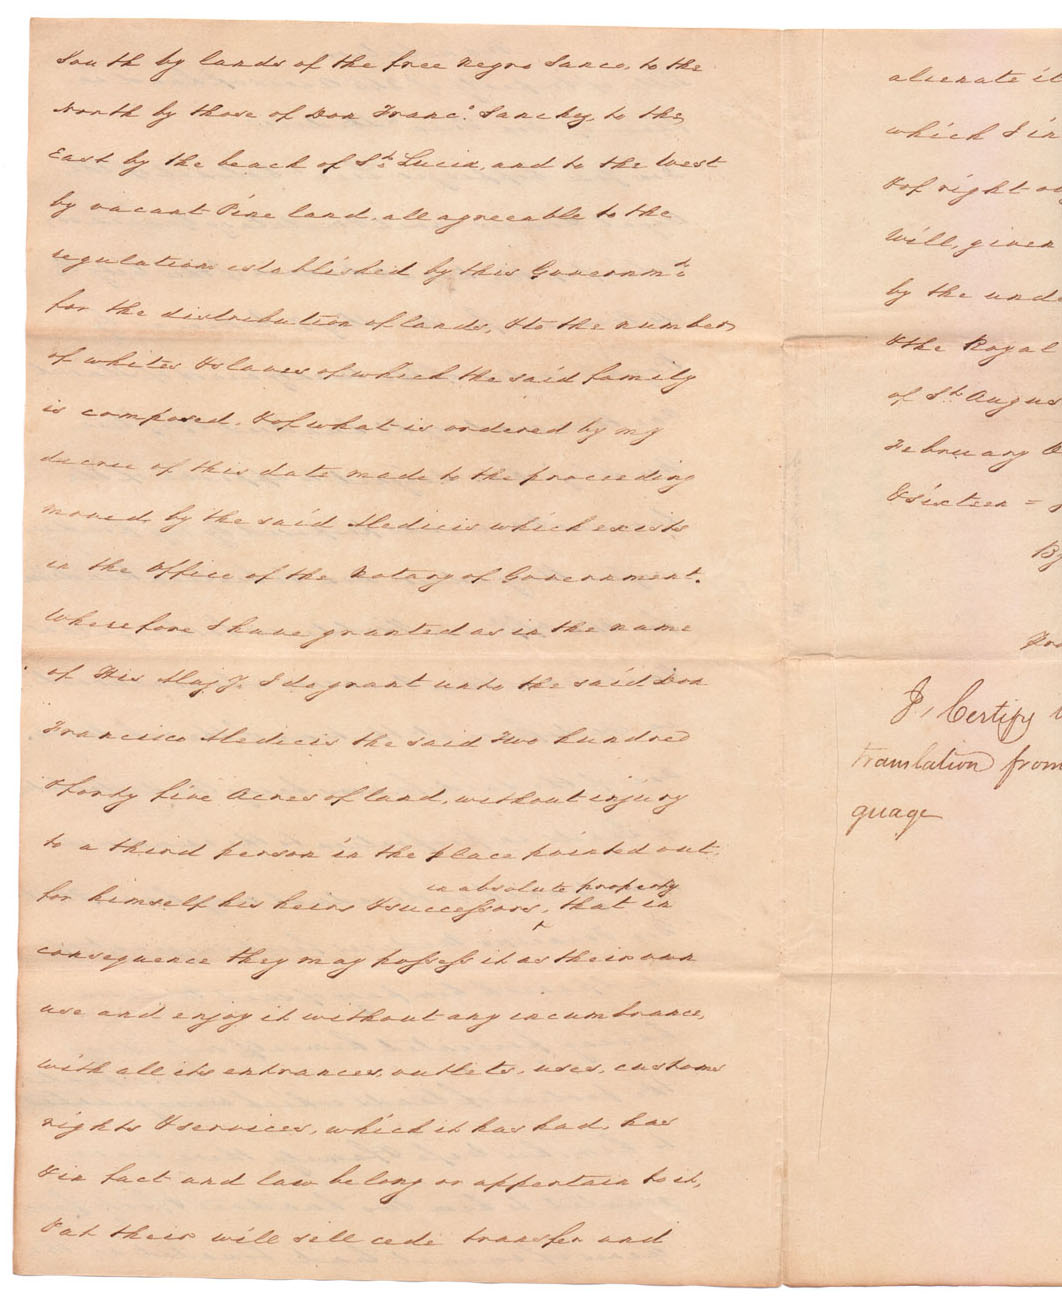 South by lands of the free Negro Sance, to the
North by those of Don Franc.o Sanchez, to the
East by the beach of St. Lucia, and to the West
by vacant Pine land, all agreeable to the
regulations established by this Governmt.
for the distribution of lands, & to the number
of whites & slaves of which the said family
is composed, & of what is ordered by my
decree of this date made to the proceeding
moved by the said Medicis which exists
in the Office of the Notary of Government.
Wherefore I have granted as in the name
of His Majy. I do grant unto the said Don
Francisco Medicis the said Two hundred
& forty five Acres of land, without injury
to a third person in the place pointed out,
in absolute property
for himself his heirs & successors, that in
consequence they may possess it as their own
use and enjoy it without any incumbrance,
with all its entrances, outlets, uses, customs
rights & services, which it has had, has
& in fact and law belong or appertain to it,
& at their will sell cede transfer and
alienate it
which I in
& of right
Will, given
by the und
& the Royal
of St. Augus
February
& sixteen =
By
I, Certify
translation from
guage